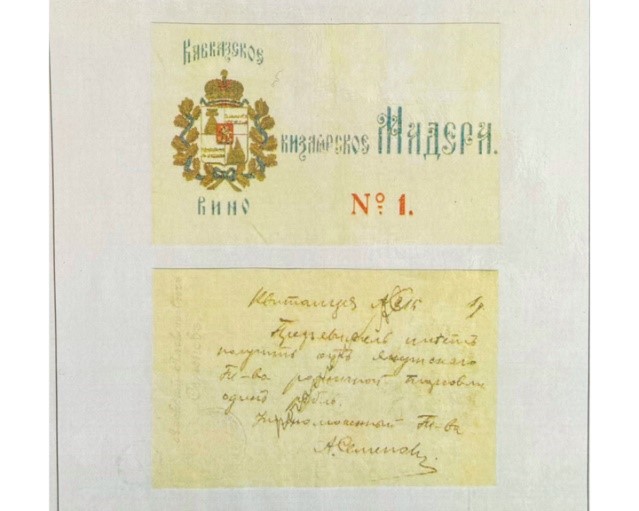 Кавказское
кизлярское Мадера.
вино
№ 1.
Квитанція №
Предъявитель имѣетъ
получить отъ Якутскаго
Т-ва розничной торговли
одинъ рубль.
Уполномоченный Т-ва
А. Семенов